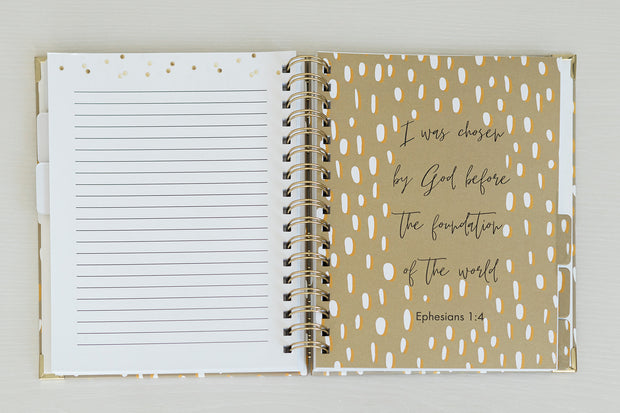 I was chosen
by God before
the foundation
of the world
Ephesians 1:4